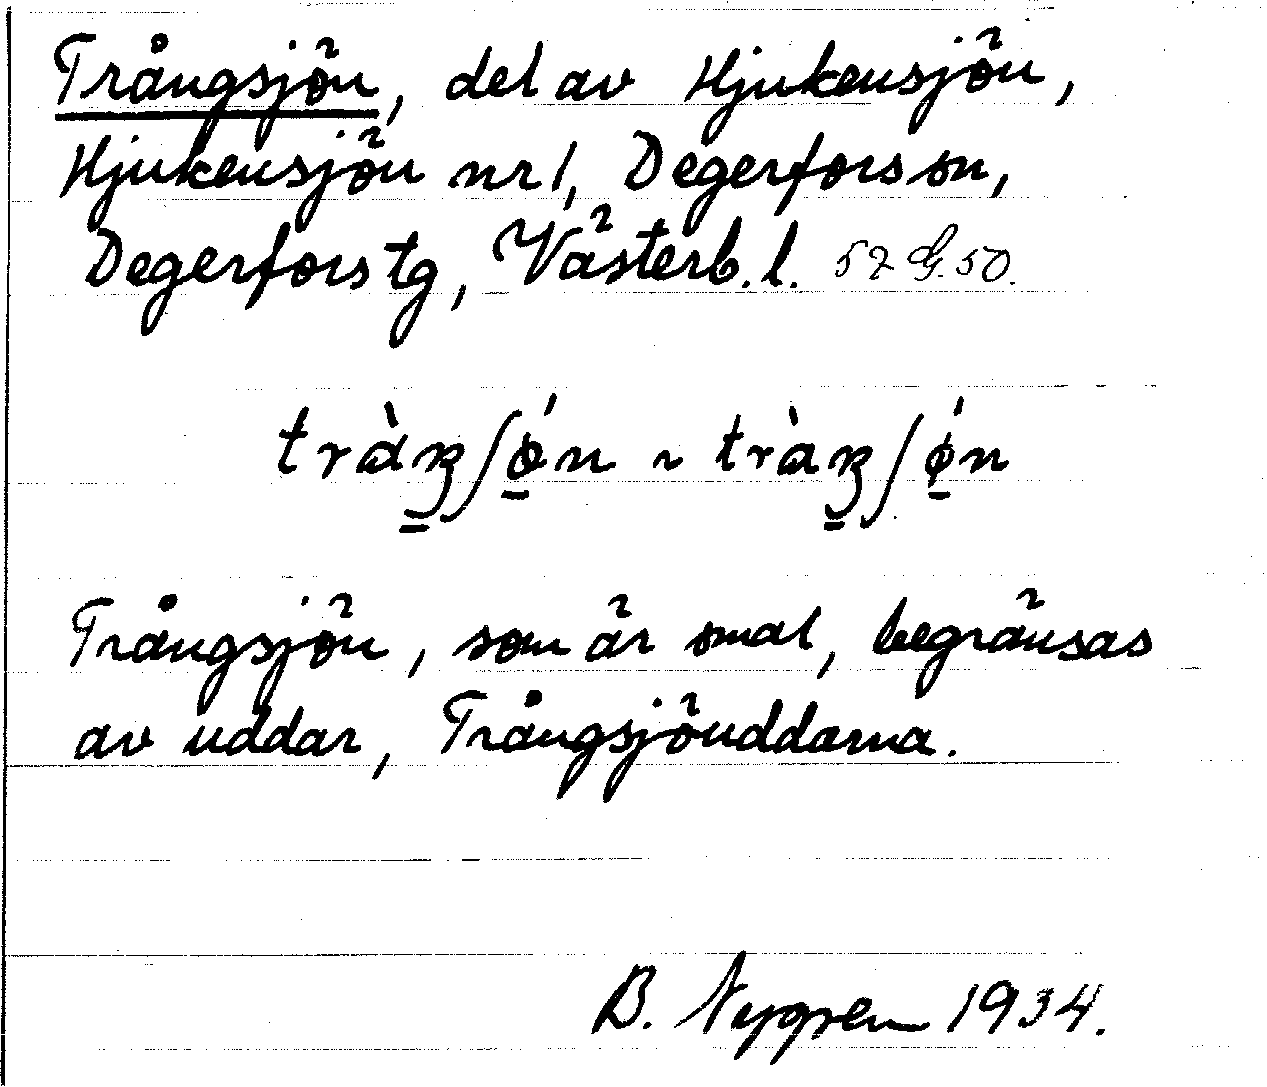 Trångsjön, del av Hjukensjön,
Hjukensjön nr 1, Degerfors sn,
Degerfors tg, Västerb. l. 52 G. 50.
tràŋʃǿn ~ tràŋʃǿn
Trångsjön, som är smal, begränsas
av uddar, Trångsjöuddarna.
B. Nygren 1934.